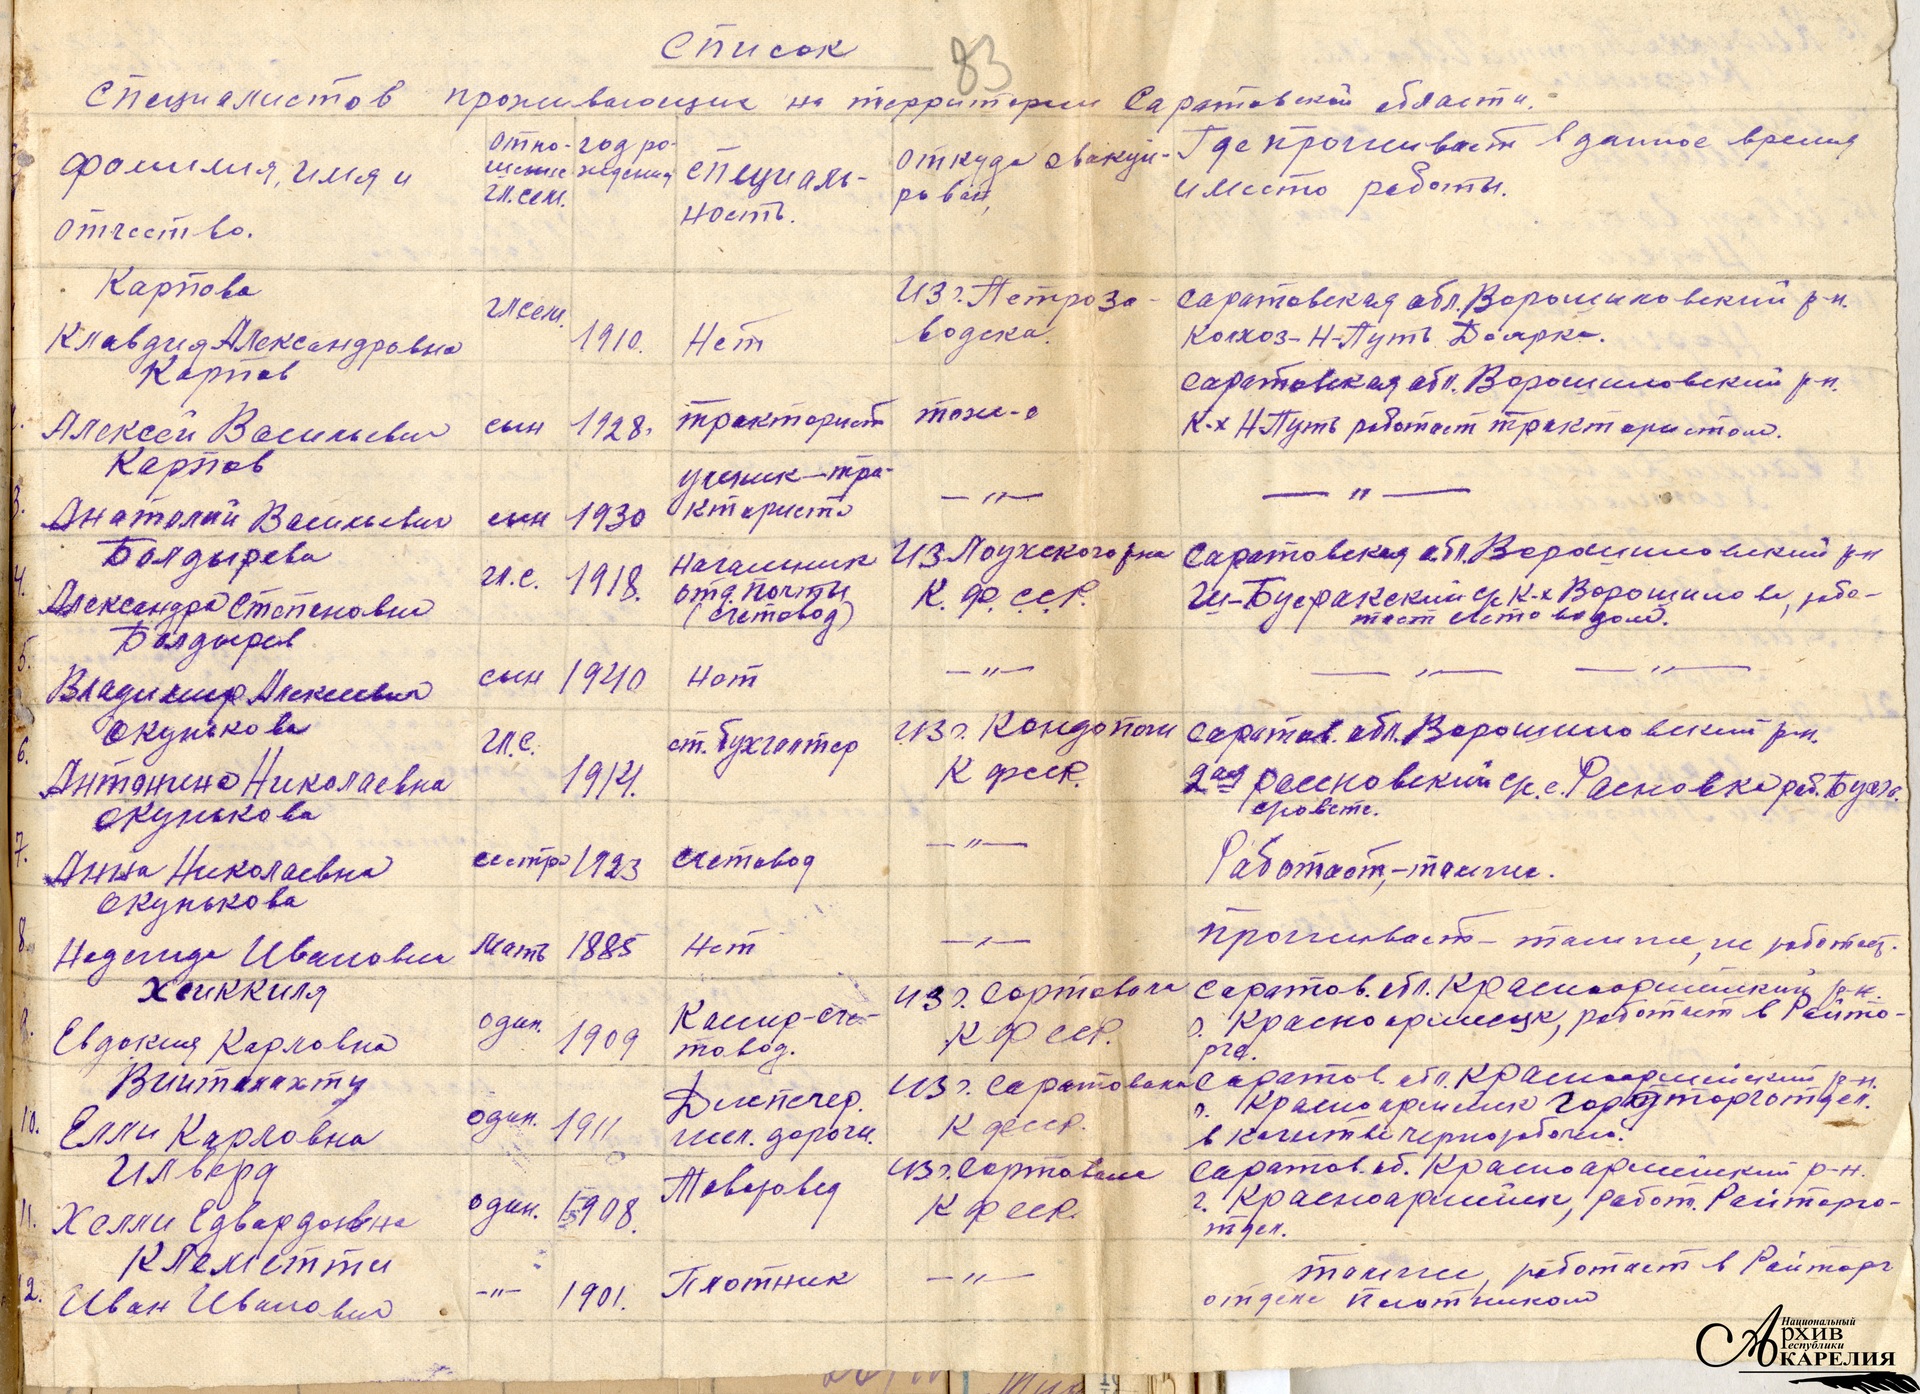 Список
83
Специалистов проживающие на территории Саратовской области.
Фамилия, имя и отчество.
Отно-шение гл.сем.
год ро-ждения
Специаль-ность.
Откуда эвакуи-рован,
Где проживает в данное время и место работы.
Карпова
Клавдия Александровна
гл.сем.
1910.
Нет
Из г. Петроза-водска.
Саратовская обл. Ворошиловский р-н.
Колхоз-Н-Путь Доярка.
2.
Карпов
Алексей Васильевич
сын
1928.
тракторист
тоже-о
Саратовская обл. Ворошиловский р-н.
К-х Н-Путь работает трактористом.
3.
Карпов
Анатолий Васильевич
сын
1930
ученик-тра-кториста
— " —
— " —
4.
Болдырева
Александра Степановна
гл.с.
1918.
Начальник отд. почты (счетовод)
Из Лоухского р-на
К.Ф.ССР.
Саратовская обл. Ворошиловский р-н
К-х Ворошилова, рабо-тает счетоводом.
5.
Болдырев
Владимир Алексеевич
сын
1940
Нет
— " —
— " — — " —
6.
Окунькова
Антонина Николаевна
гл.с.
1914.
ст. бухгалтер
Из г. Кондопоги
К ФССР.
Саратов. обл. Ворошиловский р-н.
7.
Окунькова
Анна Николаевна
сестра
1923
счетовод
— " —
Работает,-там же.
8.
Окунькова
Надежда Ивановна
Мать
1885
Нет
— " —
Проживает- там же, не работает.
9.
Хейккиля
Евдокия Карловна
один.
1909
Кассир-сче-товод.
Из г. Сортовала
К ФССР.
Саратов. обл. Красноармейский р-н.
г. Красноармейск, работает в Райто-рге.
10.
Елли Карловна
один.
1911
Диспетчер. жел. дороги.
К ФССР.
Саратов. обл. Красноармейский р-н.
г. Красноармейск
в качестве чернорабочей.
11.
Ильвард
Хелли Едвардовна
один.
1908.
Товаровед
Из г. Сортовала
К ФССР.
Саратов. об. Красноармейский р-н.
г. Красноармейск, работ. Райторго-тдел.
12.
Клеметти
Иван Иванович
-"-
1901.
Плотник
— " —
там же, работает в Райторг
отделе плотником
Национальный
Архив
Республики
Карелия